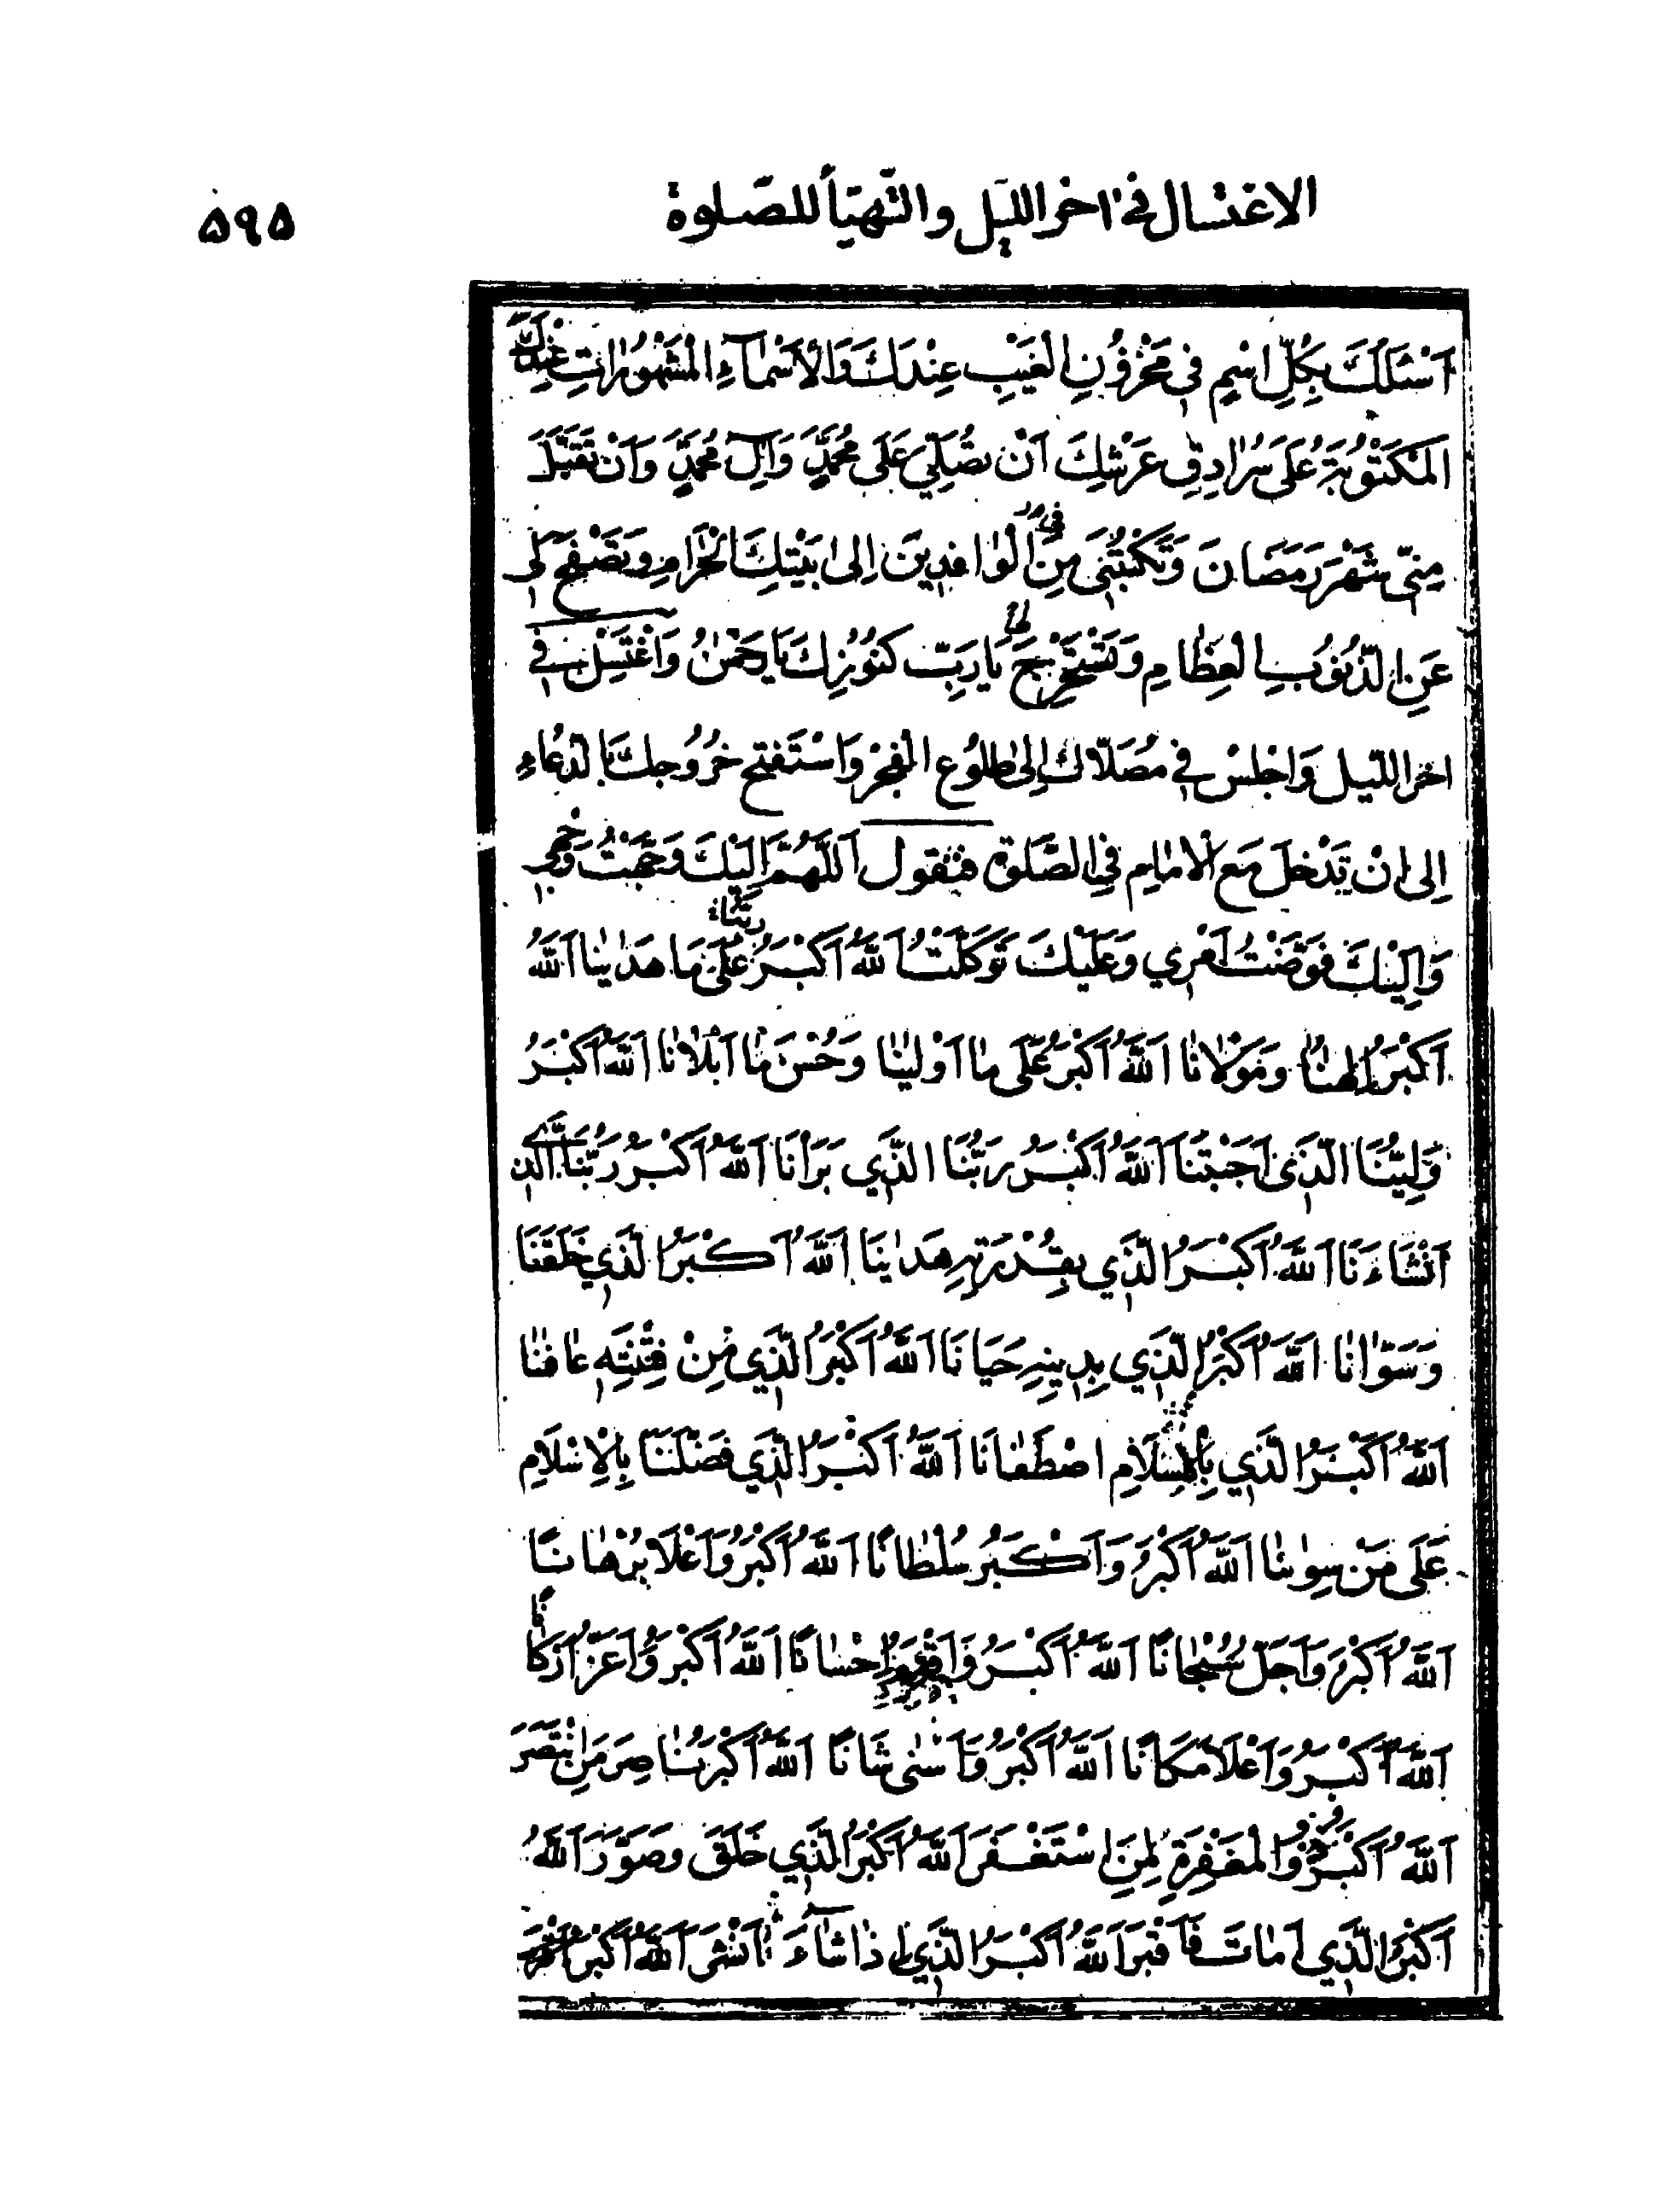 الاغتسال في اخر الليل والتهيأ للصلوة
۵۹۵
اَسْئَلُكَ بِكُلِّ اسْمٍ في مَخْزُونِ الْغَيْبِ عِنْدَكَ وَالْأَسْمٰاءِ الْمَشْهُورٰاتِ عِنْدَكَ
الْمَكْتُوبَةِ عَلَى سُرٰادِقِ عَرْشِكَ اَنْ تُصَلِّيَ عَلَى مُحَمَّدٍ وَآلِ مُحَمَّدٍ وَاَنْ تَقَبَّلَ
مِنّي شَهْرَ رَمَضَانَ وَتَكْتُبَنِي مِنَ الْوٰافِدِينَ اِلىٰ بَيْتِكَ الْحَرٰامِ وَتَصْفَحَ لي
عَنِ الذُّنُوبِ الْعِظٰامِ وَتَسْتَخْرِجَ يَا رَبِّ كُنُوزَكَ يَا رَحْمٰنُ وَاغْتَسِلْ في
اخر اللّيل وَاجْلِسْ في مُصَلّاكَ اِلىٰ طُلُوعِ الْفَجْرِ وَاسْتَفْتِحْ خُرُوجَكَ بِالدُّعَاءِ
اِلى اَنْ تَدْخُلَ مَعَ الْاِمٰامِ فِي الصَّلٰوةِ فتقول اَللّٰهُمَّ اِلَيْكَ وَجَّهْتُ وَجْهي
وَاِلَيْكَ فَوَّضْتُ اَمْرِي وَعَلَيْكَ تَوَكَّلْتُ اَللّٰهُ اَكْبَرُ عَلَى مَا هَدٰينٰا اَللّٰهُ
اَكْبَرُ اِلٰهُنٰا وَمَوْلٰانٰا اَللّٰهُ اَكْبَرُ عَلَى مٰا اَوْلٰينٰا وَحُسْنَ مٰا اَبْلٰانٰا اَللّٰهُ اَكْبَرُ
وَلِيُّنَا الَّذِي اجْتَبَنَا اَللّٰهُ اَكْبَرُ رَبُّنَا الَّذِي بَرَاَنَا اَللّٰهُ اَكْبَرُ رَبُّنَا الَّذي
اَنْشَاءَنَا اَللّٰهُ اَكْبَرُ الَّذِي بِقُدْرَتِهِ هَدٰينَا اَللّٰهُ اَكْبَرُ الَّذِي خَلَقَنَا
وَسَوّٰانٰا اَللّٰهُ اَكْبَرُ الَّذِي بِدِينِهِ حَبَانَا اَللّٰهُ اَكْبَرُ الَّذِي مِنْ فِتْنَتِهِ عٰافٰنٰا
اَللّٰهُ اَكْبَرُ الَّذِي بِالْاِسْلَامِ اصْطَفٰانَا اَللّٰهُ اَكْبَرُ الَّذِي فَضَّلَنَا بِالْاِسْلَامِ
عَلَى مَنْ سِوٰينٰا اَللّٰهُ اَكْبَرُ وَاَكْبَرُ سُلْطٰانًا اَللّٰهُ اَكْبَرُ وَاَعْلَا بُرْهَانًا
اَللّٰهُ اَكْبَرُ وَاَجَلُّ سُبْحٰانًا اَللّٰهُ اَكْبَرُ وَاَقْدَمُ اِحْسٰانًا اَللّٰهُ اَكْبَرُ وَاَعَزُّ اَرْكٰانًا
اَللّٰهُ اَكْبَرُ وَاَعْلَا مَكَانًا اَللّٰهُ اَكْبَرُ وَاَسْنٰى شَانًا اَللّٰهُ اَكْبَرُ نٰاصِرَ مَنِ انْتَصَرَ
اَللّٰهُ اَكْبَرُ ذُو الْمَغْفِرَةِ لِمَنِ اسْتَغْفَرَ اَللّٰهُ اَكْبَرُ الَّذِي خَلَقَ وَصَوَّرَ اَللّٰهُ
اَكْبَرُ الَّذِي اَمٰاتَ فَاَقْبَرَ اَللّٰهُ اَكْبَرُ الَّذِي اِذٰا شٰاءَ اَنْشَرَ اَللّٰهُ اَكْبَرُ